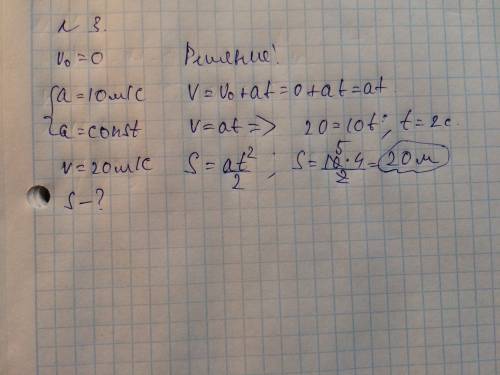 N 3.
v₀=0 Решение:
{a=10м/с V=v₀+at=0+at=at
a=const V=at=> 20=10t; t=2c.
v=20м/с S=at²/2; S=10⁵·4/2=20м
S-?